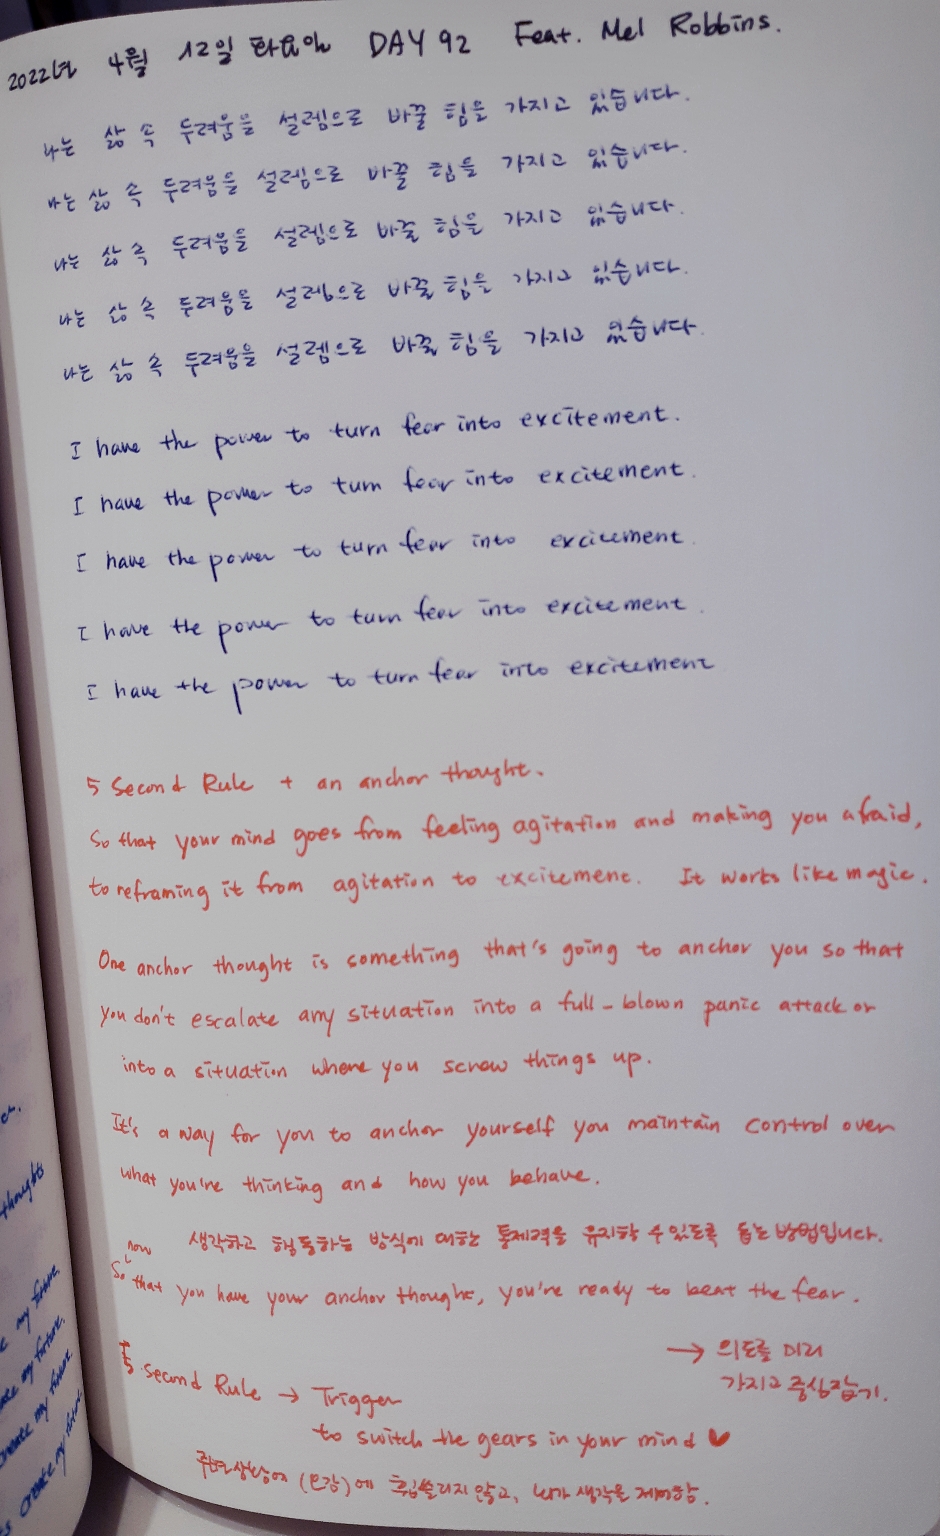 2022년 4월 12일 화요일 DAY 92 Feat. Mel Robbins.
나는 삶 속 두려움을 설렘으로 바꿀 힘을 가지고 있습니다.
나는 삶 속 두려움을 설렘으로 바꿀 힘을 가지고 있습니다.
나는 삶 속 두려움을 설렘으로 바꿀 힘을 가지고 있습니다.
나는 삶 속 두려움을 설렘으로 바꿀 힘을 가지고 있습니다.
나는 삶 속 두려움을 설렘으로 바꿀 힘을 가지고 있습니다.
I have the power to turn fear into excitement.
I have the power to turn fear into excitement.
I have the power to turn fear into excitement.
I have the power to turn fear into excitement.
I have the power to turn fear into excitement
5 Second Rule + an anchor thought.
So that your mind goes from feeling agitation and making you afraid,
to reframing it from agitation to excitement. It works like magic.
One anchor thought is something that's going to anchor you so that
you don't escalate any situation into a full-blown panic attack or
into a situation where you screw things up.
It's a way for you to anchor yourself you maintain control over
what you're thinking and how you behave.
생각하고 행동하는 방식에 대한 통제력을 유지할 수 있도록 돕는 방법입니다.
So now that you have your anchor thought, you're ready to beat the fear.
→ 의도를 미리
가지고 중심잡기.
5 Second Rule → Trigger
to switch the gears in your mind ♥
주변상황에 (오감)에 휩쓸리지 않고, 내가 생각을 제어함.
thoughts
my future.
my future.
create my future.
create my future.